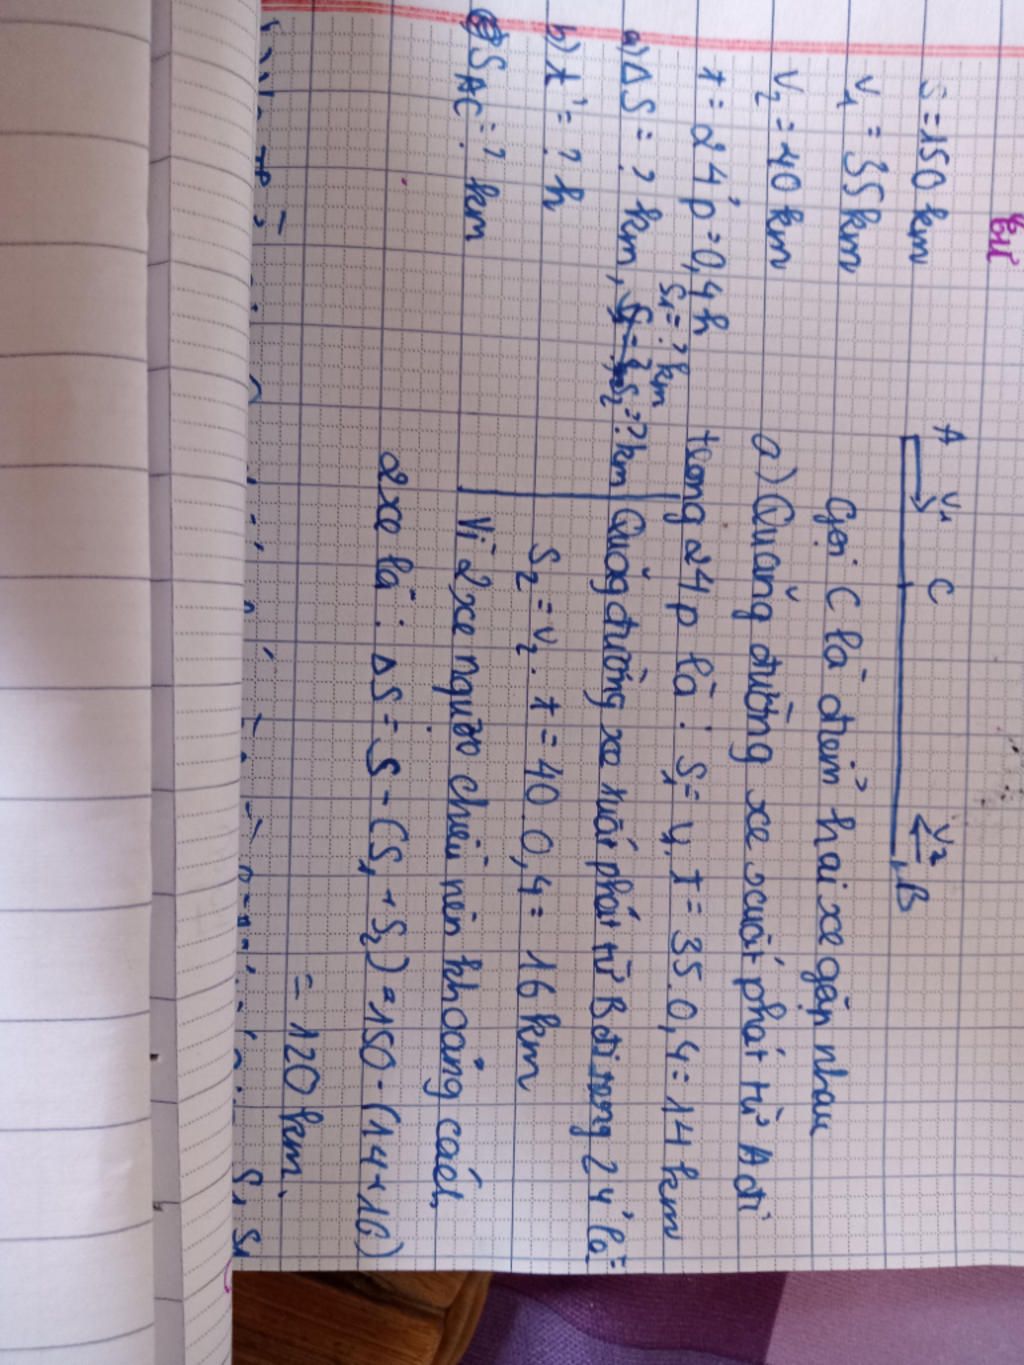 S = 150 km
V₁ = 35 km
V₂ = 40 km
t = 24' p = 0,4h
S₁ = ? km
a) ΔS = ? km, S₂ = ? km
b) t' = ? h
S AC = ? km
A V₁ C V₂ B
Gọi C là điểm hai xe gặp nhau
a) Quãng đường xe xuất phát từ A đi
trong 24 p là : S₁ = V₁ . t = 35 . 0,4 = 14 km
Quãng đường xe xuất phát từ B đi trong 24' là:
S₂ = V₂ . t = 40 . 0,4 = 16 km
Vì 2 xe ngược chiều nên khoảng cách
2 xe là : ΔS = S - (S₁ + S₂) = 150 - (14 + 16)
= 120 km.